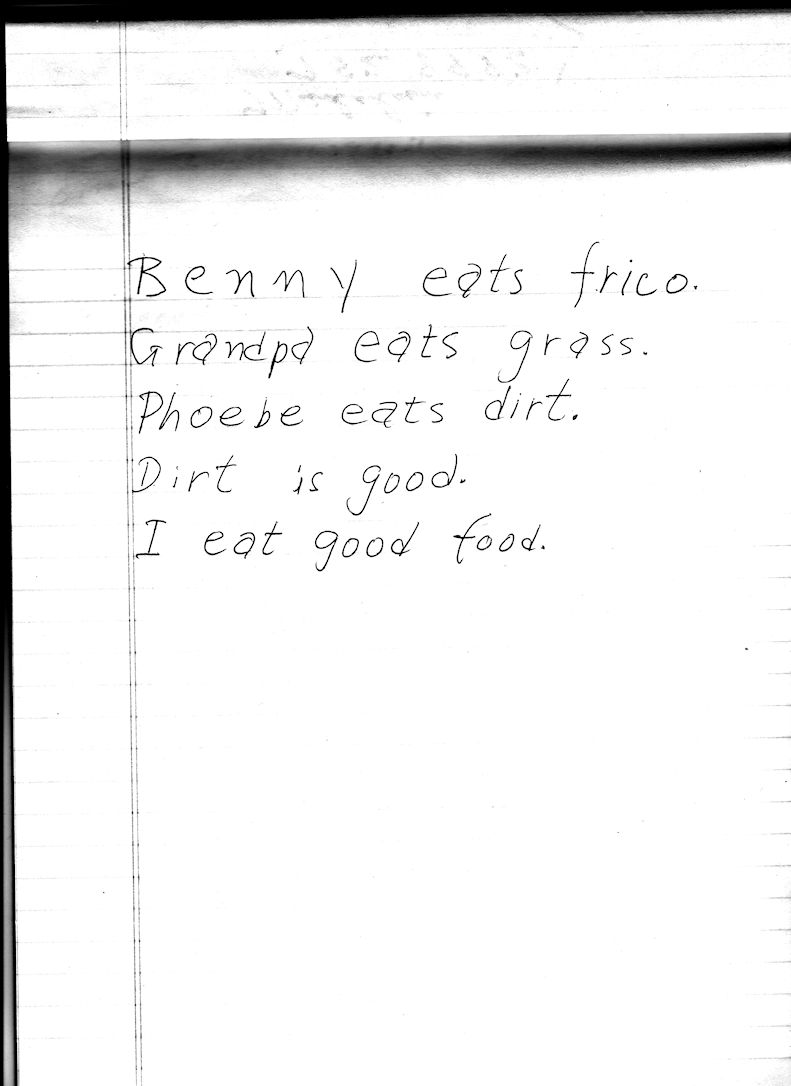 Benny eats frico.
Grandpa eats grass.
Phoebe eats dirt.
Dirt is good.
I eat good food.